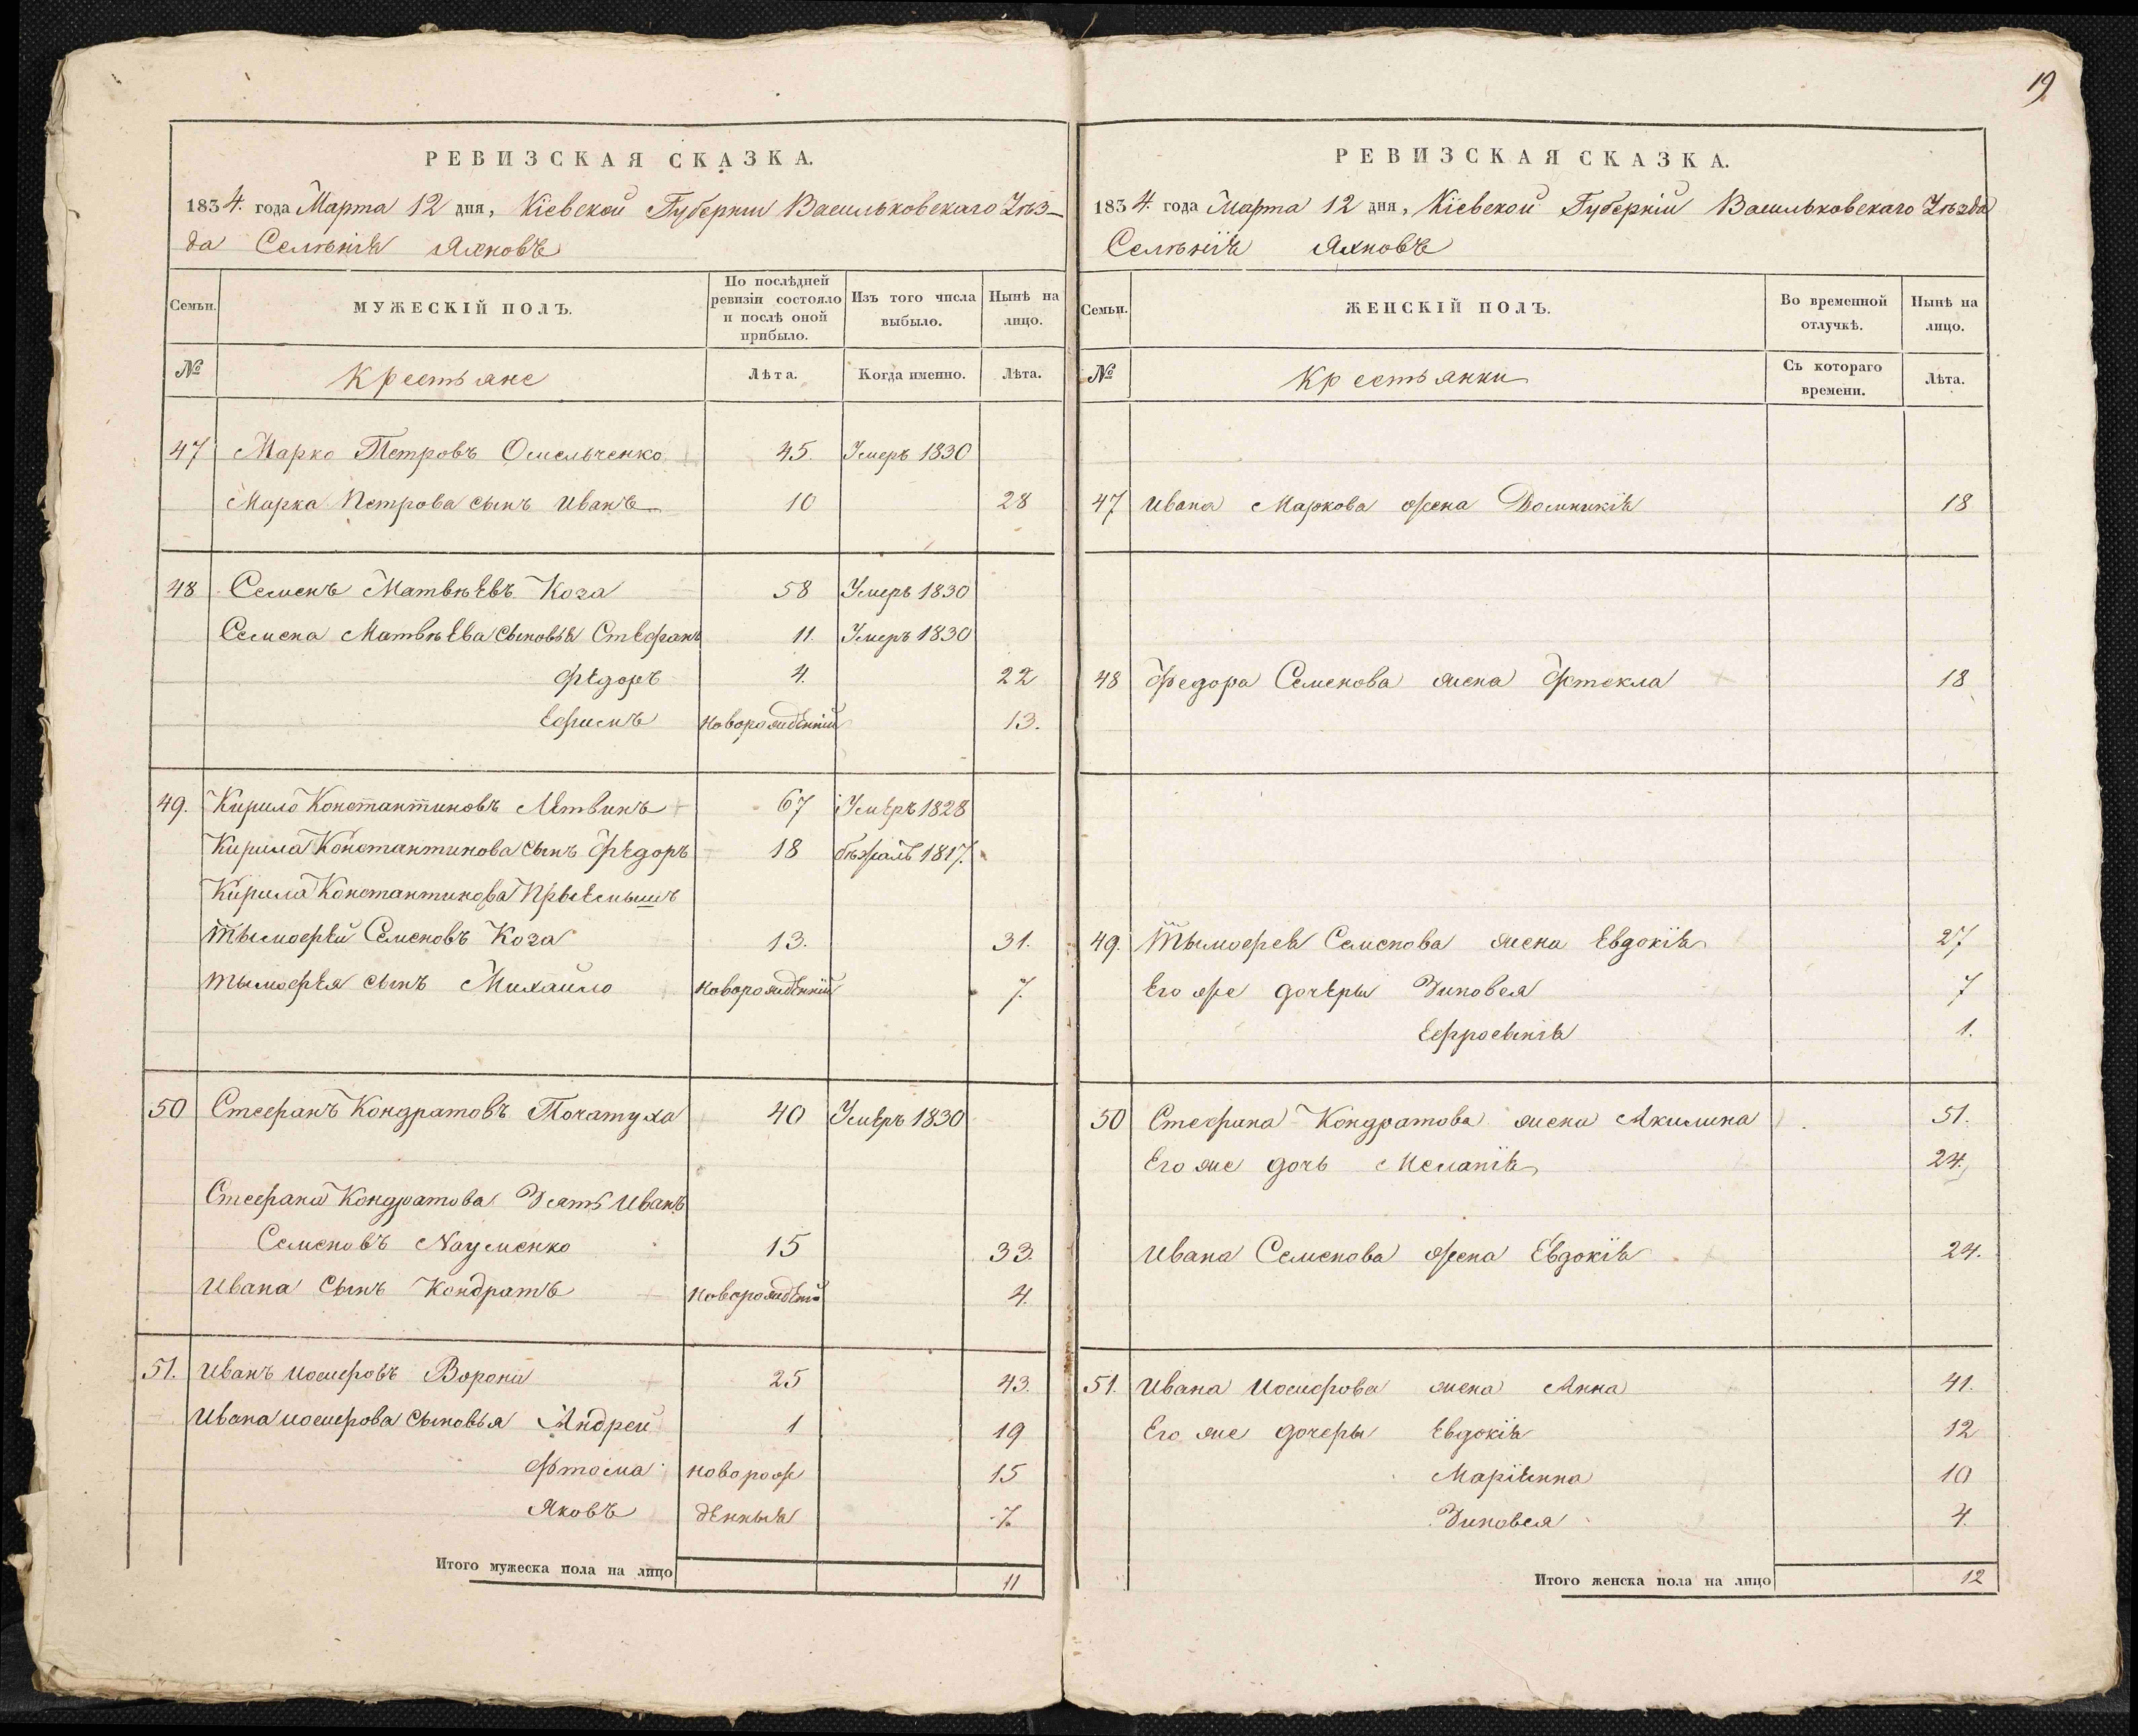 19
РЕВИЗСКАЯ СКАЗКА.
1834. года Марта 12 дня, Кіевской Губерніи Васильковскаго Уѣз-
да Селѣнія Яхновъ
Семьи. МУЖЕСКІЙ ПОЛЪ. По послѣдней ревизіи состояло и послѣ оной прибыло. Изъ того числа выбыло. Нынѣ на лицо.
№ Крестьяне Лѣта. Когда именно. Лѣта.
47 Марко Петровъ Омельченко 45. Умеръ 1830
Марка Петрова сынъ Иванъ 10 28
48 Семенъ Матвѣевъ Коза 58 Умеръ 1830
Семена Матвѣева сыновья Стефанъ 11. Умеръ 1830
Федоръ 4. 22
Ефимъ новорожденній 13.
49. Кирило Константиновъ Литвинъ 67 Умеръ 1828
Кирила Константинова сынъ Федоръ 18 бѣжалъ 1817.
Кирила Константинова Пріемышъ
Тымофей Семеновъ Коза 13. 31.
Тымофея сынъ Михайло новорожденній 7.
50 Стефанъ Кондратовъ Початуха 40 Умеръ 1830
Стефана Кондратова Зять Иванъ
Семеновъ Науменко 15 33.
Ивана сынъ Кондратъ 4.
51. Иванъ Иосифовъ Ворона 25 43.
Ивана Иосифова сыновья Андрей 1 19
Фтома новорож 15
Яковъ денныя 7.
Итого мужеска пола на лицо 11
РЕВИЗСКАЯ СКАЗКА.
1834. года Марта 12 дня, Кіевской Губерній Васильковскаго Уѣзда
Селѣнія Яхновъ
Семьи. ЖЕНСКІЙ ПОЛЪ. Во временной отлучкѣ. Нынѣ на лицо.
№ Крестьянки Съ котораго времени. Лѣта.
47 Ивана Маркова жена Домникія 18
48 Федора Семенова жена Фтекла 18
49. Тымофея Семенова жена Евдокія 27
Его же дочеры Зиновея 7
Ефросынія 1.
50 Стефана Кондратова жена Акилина 51.
Его же дочь Меланія 24.
Ивана Семенова жена Евдокія 24.
51. Ивана Иосифова жена Анна 41.
Его же дочеры Евдокія 12
Маріянна 10
Зиновея 4.
Итого женска пола на лицо 12